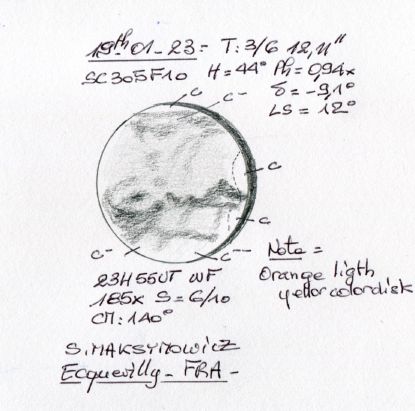 19th-01-23= T:3/6 12,11"
SC305F10 H=44° Ph=0,94x
δ=-9,1°
LS=12°
C
C-
C
C
C-
C--
Note=
Orange ligth
yellor colordisk
23H55UT WF
185x S=6/10
CM:140°
S.MAKSYMOWICZ
Ecquevilly-FRA-